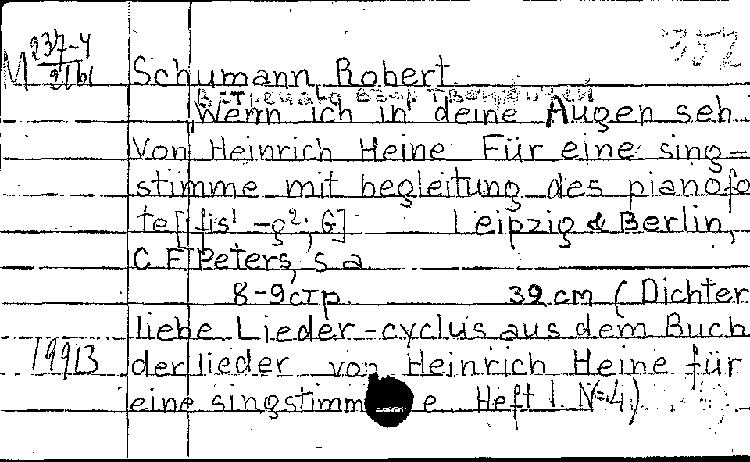 М 237-4
2761
352
Schumann, Robert
Wenn ich in deine Augen seh.
Von Heinrich Heine Für eine sing=
stimme mit begleitung des pianofo
te [fis¹ -g²; G] Leipzig & Berlin,
C F Peters, s a
8-9 стр. 39 cm (Dichter
liebe Lieder-cyclus aus dem Buch
19913 der lieder von Heinrich Heine für
eine singstimme Heft 1 N=4)